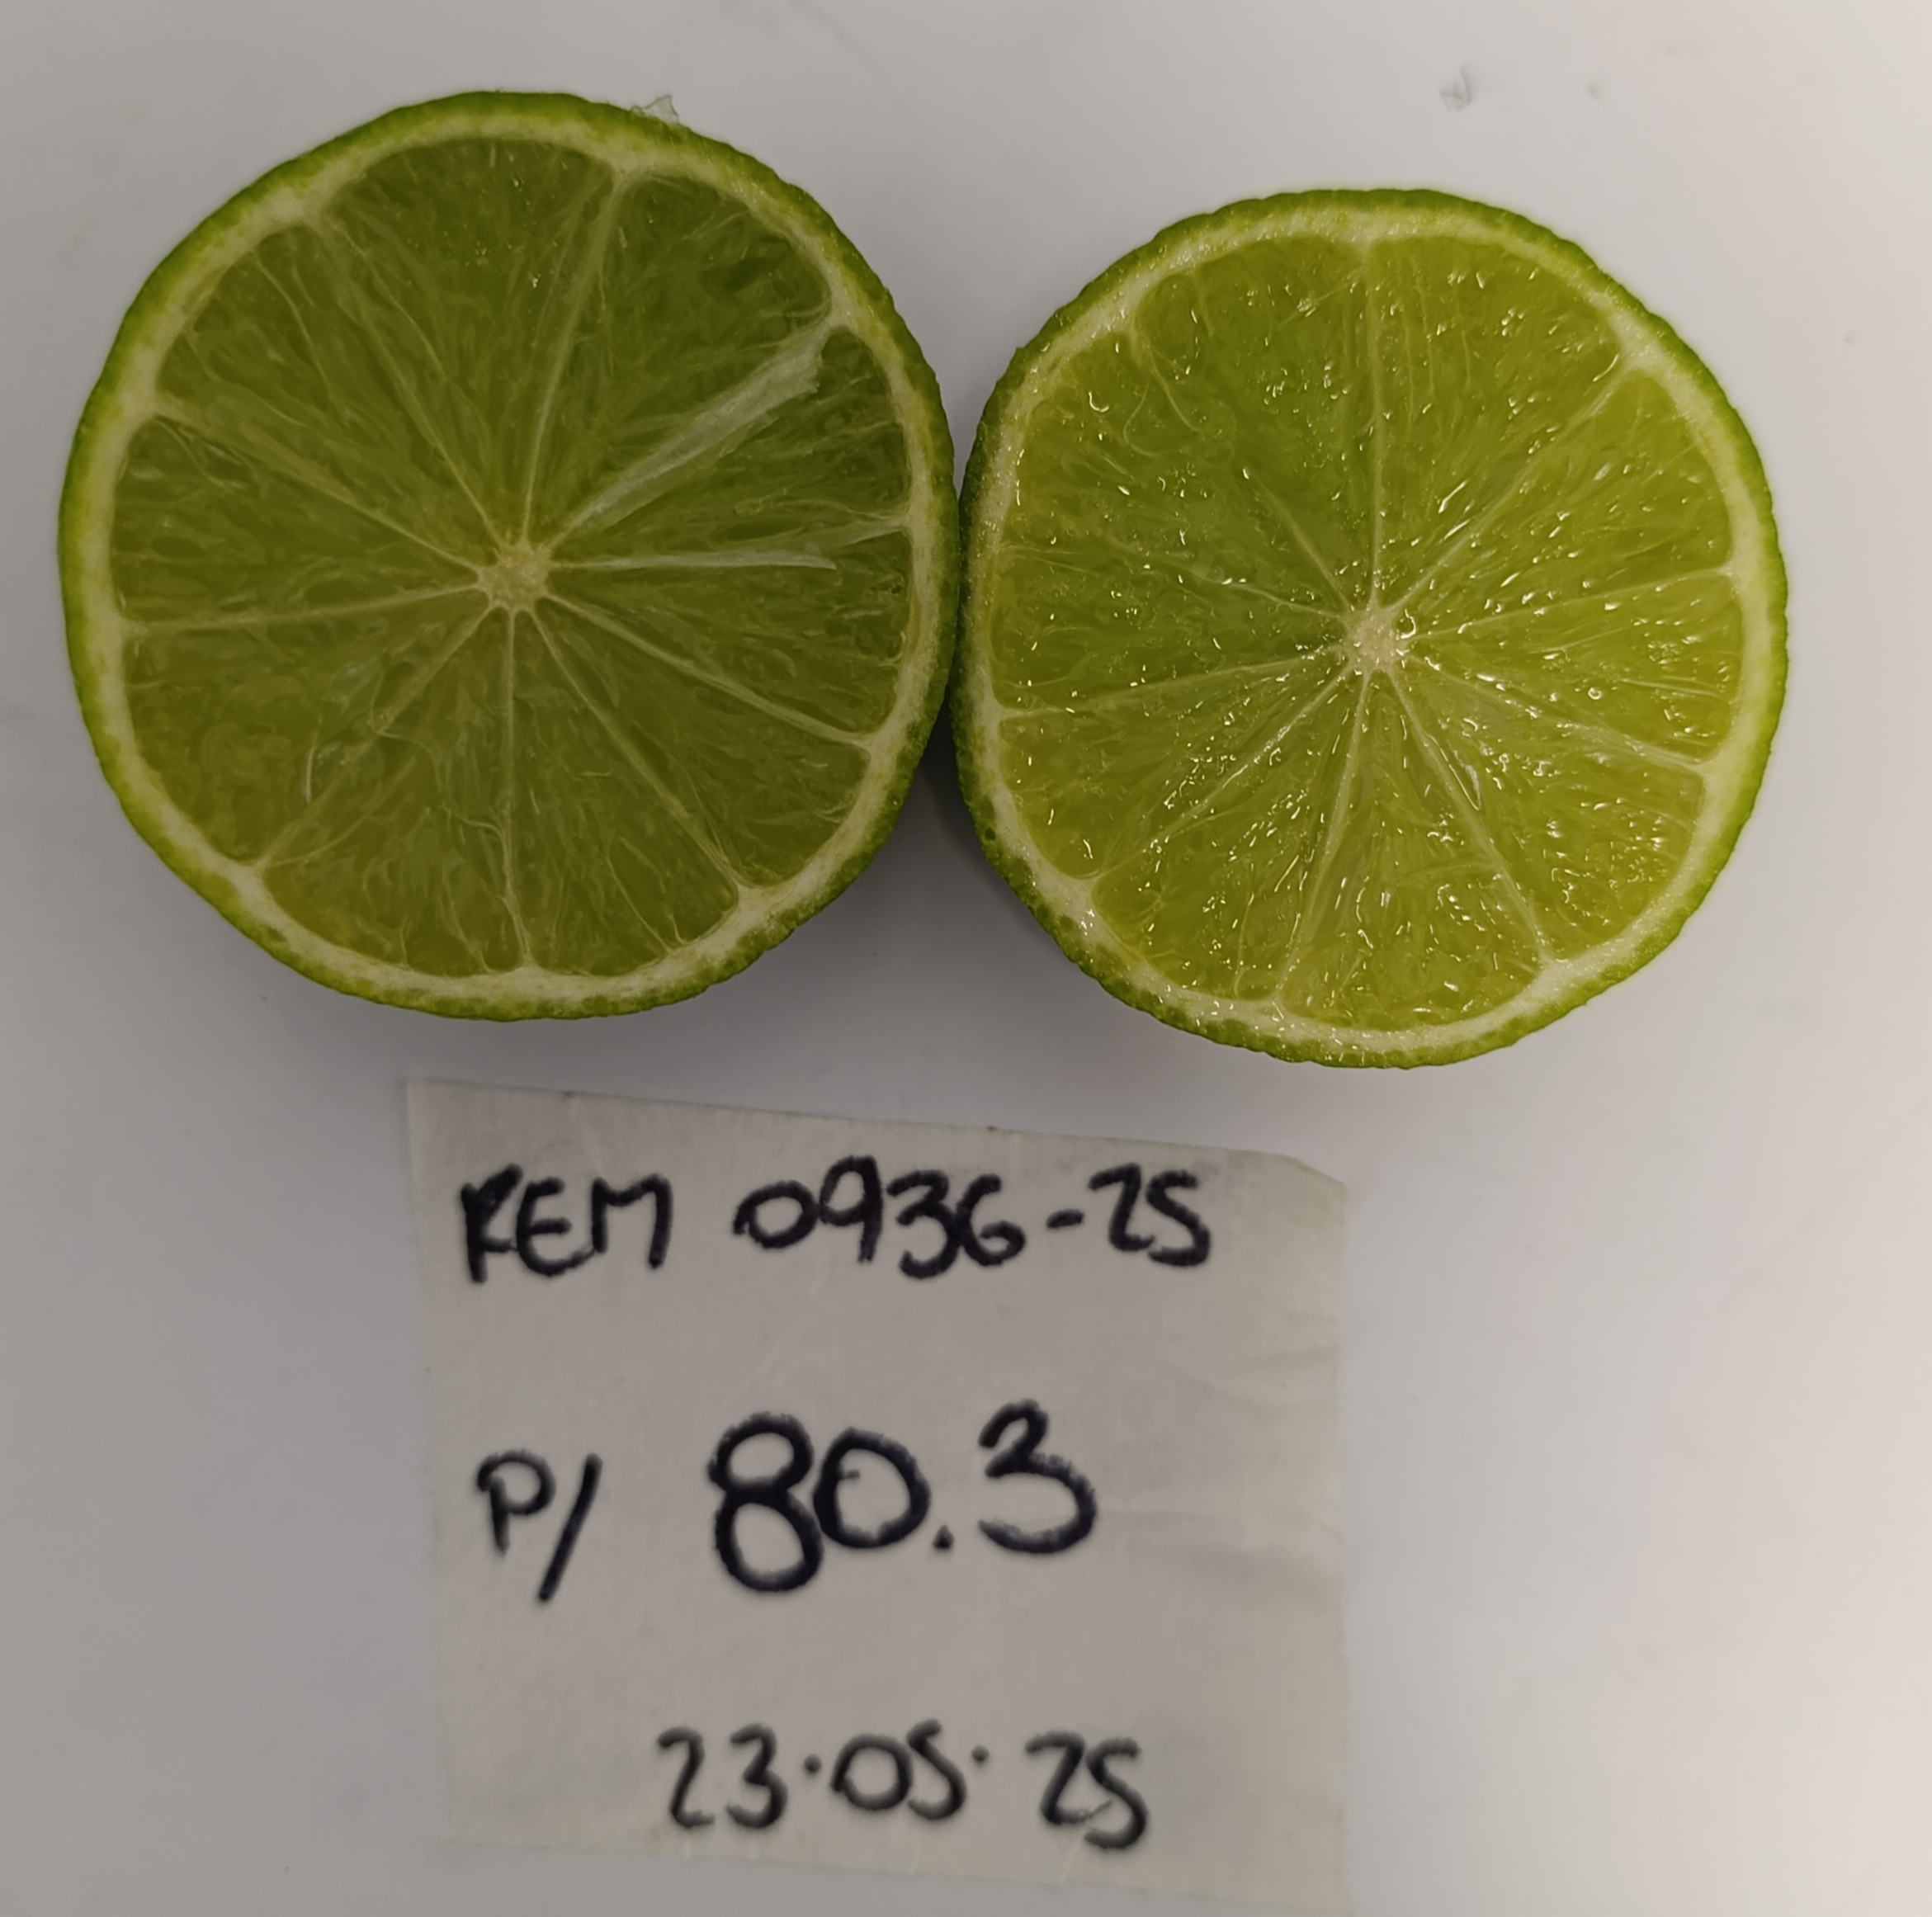 REM 0936-25
P/ 80.3
23.05.25